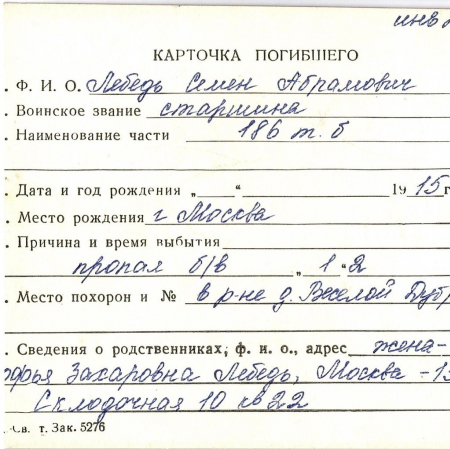 инв
КАРТОЧКА ПОГИБШЕГО
. Ф. И. О. Лебедь Семен Абрамович
. Воинское звание старшина
. Наименование части 186 т. б
. Дата и год рождения „ “ 1915 г
. Место рождения г Москва
. Причина и время выбытия
пропал б/в „ 1 “ 2
. Место похорон и № в р-не д. Веселой Дубр
. Сведения о родственниках, ф. и. о., адрес жена-
офья Захаровна Лебедь, Москва -
Склодочная 10 кв 22
.-Св. т. Зак. 5276